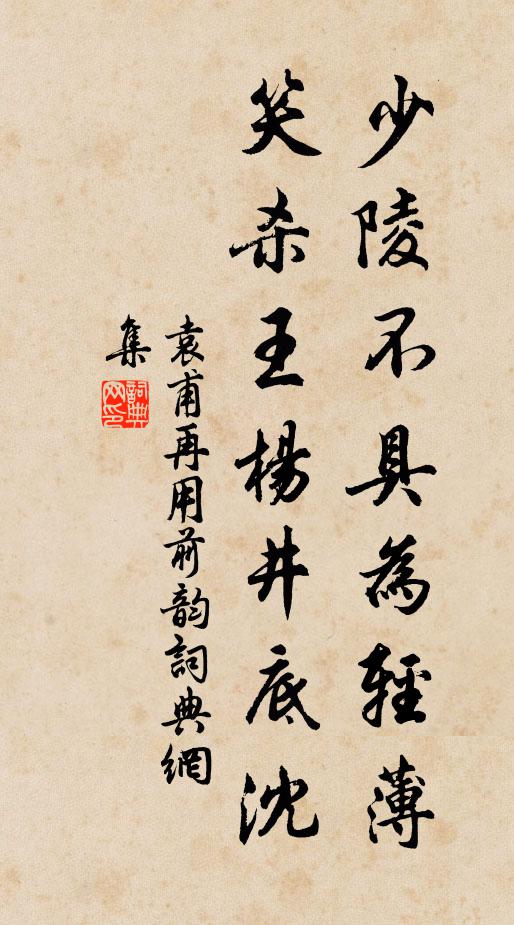 少陵不具為輕薄
笑杀王楊井底沈
袁甫再用前韵詞典網
集
詞典网印